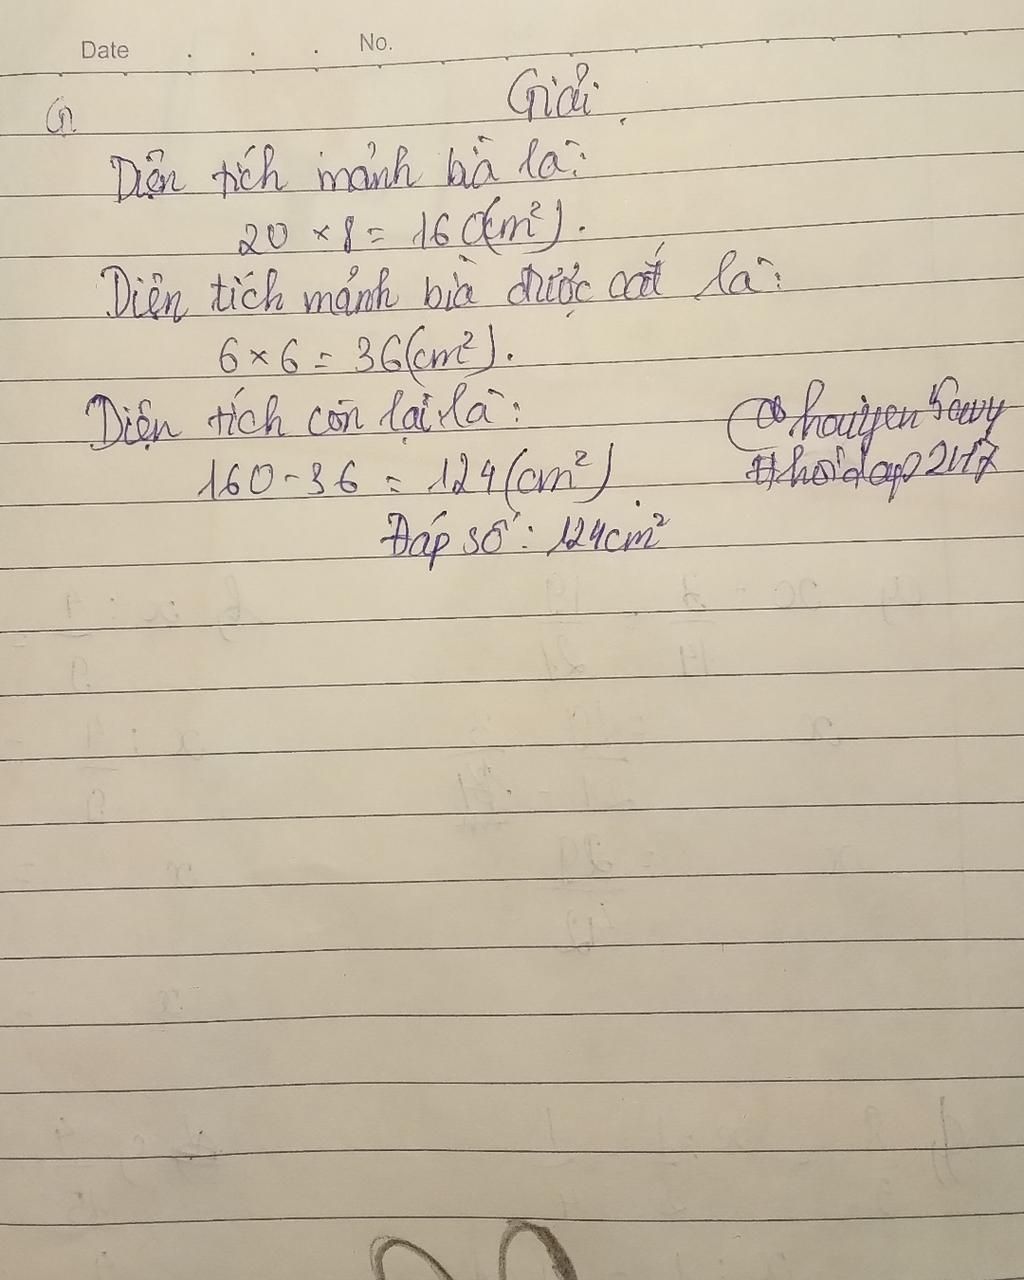 Date . . . No.
Giải
Diện tích mảnh bìa là:
20 × 8 = 160(cm²).
Diện tích mảnh bìa được cắt là:
6 × 6 = 36(cm²).
Diện tích còn lại là:
160 - 36 = 124(cm²).
Đáp số: 124cm²
#hoidap247